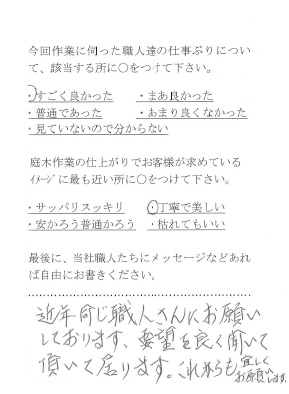 今回作業に伺った職人達の仕事ぶりについ
て、該当する所に○をつけて下さい。
・すごく良かった ・まあ良かった
・普通であった ・あまり良くなかった
・見ていないので分からない
庭木作業の仕上がりでお客様が求めている
ｲﾒｰｼﾞに最も近い所に○をつけて下さい。
・サッパリスッキリ ・丁寧で美しい
・安かろう普通かろう ・枯れてもいい
最後に、当社職人たちにメッセージなどあれ
ば自由にお書きください。
近年同じ職人さんにお願い
しております、要望を良く聞いて
頂いて居ります。これからも宜しく
お願いします。